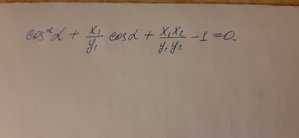 cos²α + x₁/y₁ cosα + x₁x₂/y₁y₂ - 1 = 0.